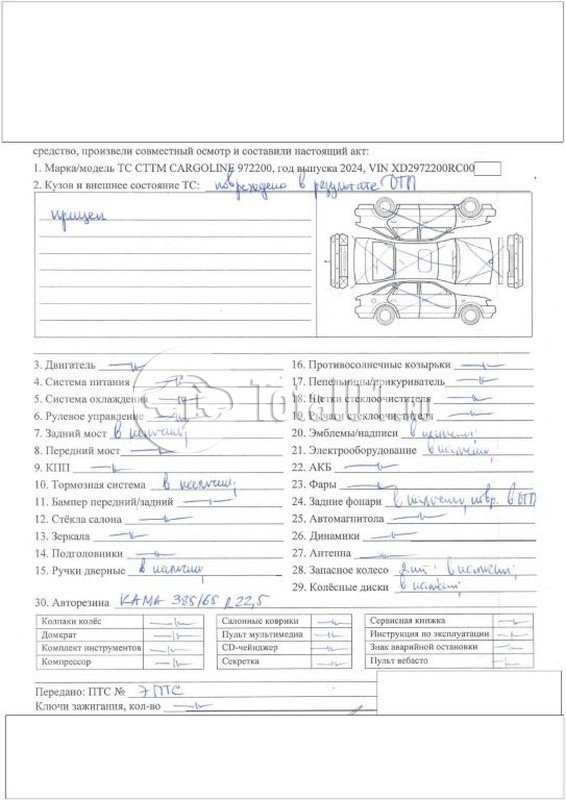 средство, произвели совместный осмотр и составили настоящий акт:
1. Марка/модель ТС СТТМ CARGOLINE 972200, год выпуска 2024, VIN XD2972200RC00
2. Кузов и внешнее состояние ТС: повреждено в результате ДТП
прицеп
3. Двигатель
4. Система питания
5. Система охлаждения
6. Рулевое управление
7. Задний мост в наличии;
8. Передний мост
9. КПП
10. Тормозная система в наличии;
11. Бампер передний/задний
12. Стёкла салона
13. Зеркала
14. Подголовники
15. Ручки дверные в наличии;
16. Противосолнечные козырьки
17. Пепельницы/прикуриватель
18. Щетки стеклоочистителя
19. Рычаги стеклоочистителя
20. Эмблемы/надписи в наличии;
21. Электрооборудование в наличии;
22. АКБ
23. Фары
24. Задние фонари в наличии, повр. в ДТП
25. Автомагнитола
26. Динамики
27. Антенна
28. Запасное колесо 2 шт. в наличии;
29. Колёсные диски в наличии;
30. Авторезина КАМА 385/65 R 22,5
Колпаки колёс
Домкрат
Комплект инструментов
Компрессор
Салонные коврики
Пульт мультимедиа
CD-чейнджер
Секретка
Сервисная книжка
Инструкция по эксплуатации
Знак аварийной остановки
Пульт вебасто
Передано: ПТС № ЭПТС
Ключи зажигания, кол-во